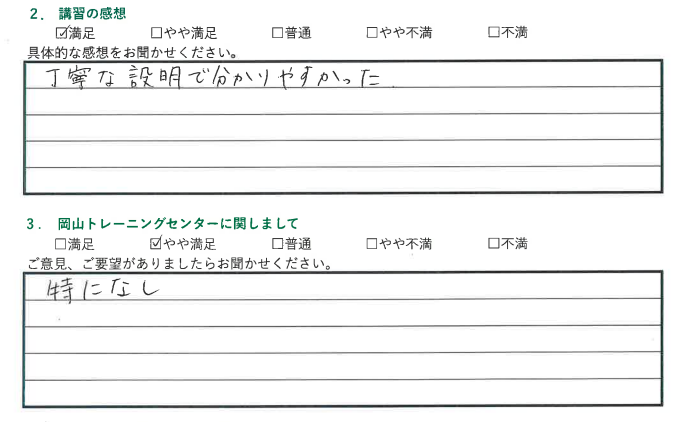 ２．　講習の感想
☑満足　☐やや満足　☐普通　☐やや不満　☐不満
具体的な感想をお聞かせください。
丁寧な説明で分かりやすかった.
３．　岡山トレーニングセンターに関しまして
☐満足　☑やや満足　☐普通　☐やや不満　☐不満
ご意見、ご要望がありましたらお聞かせください。
特になし